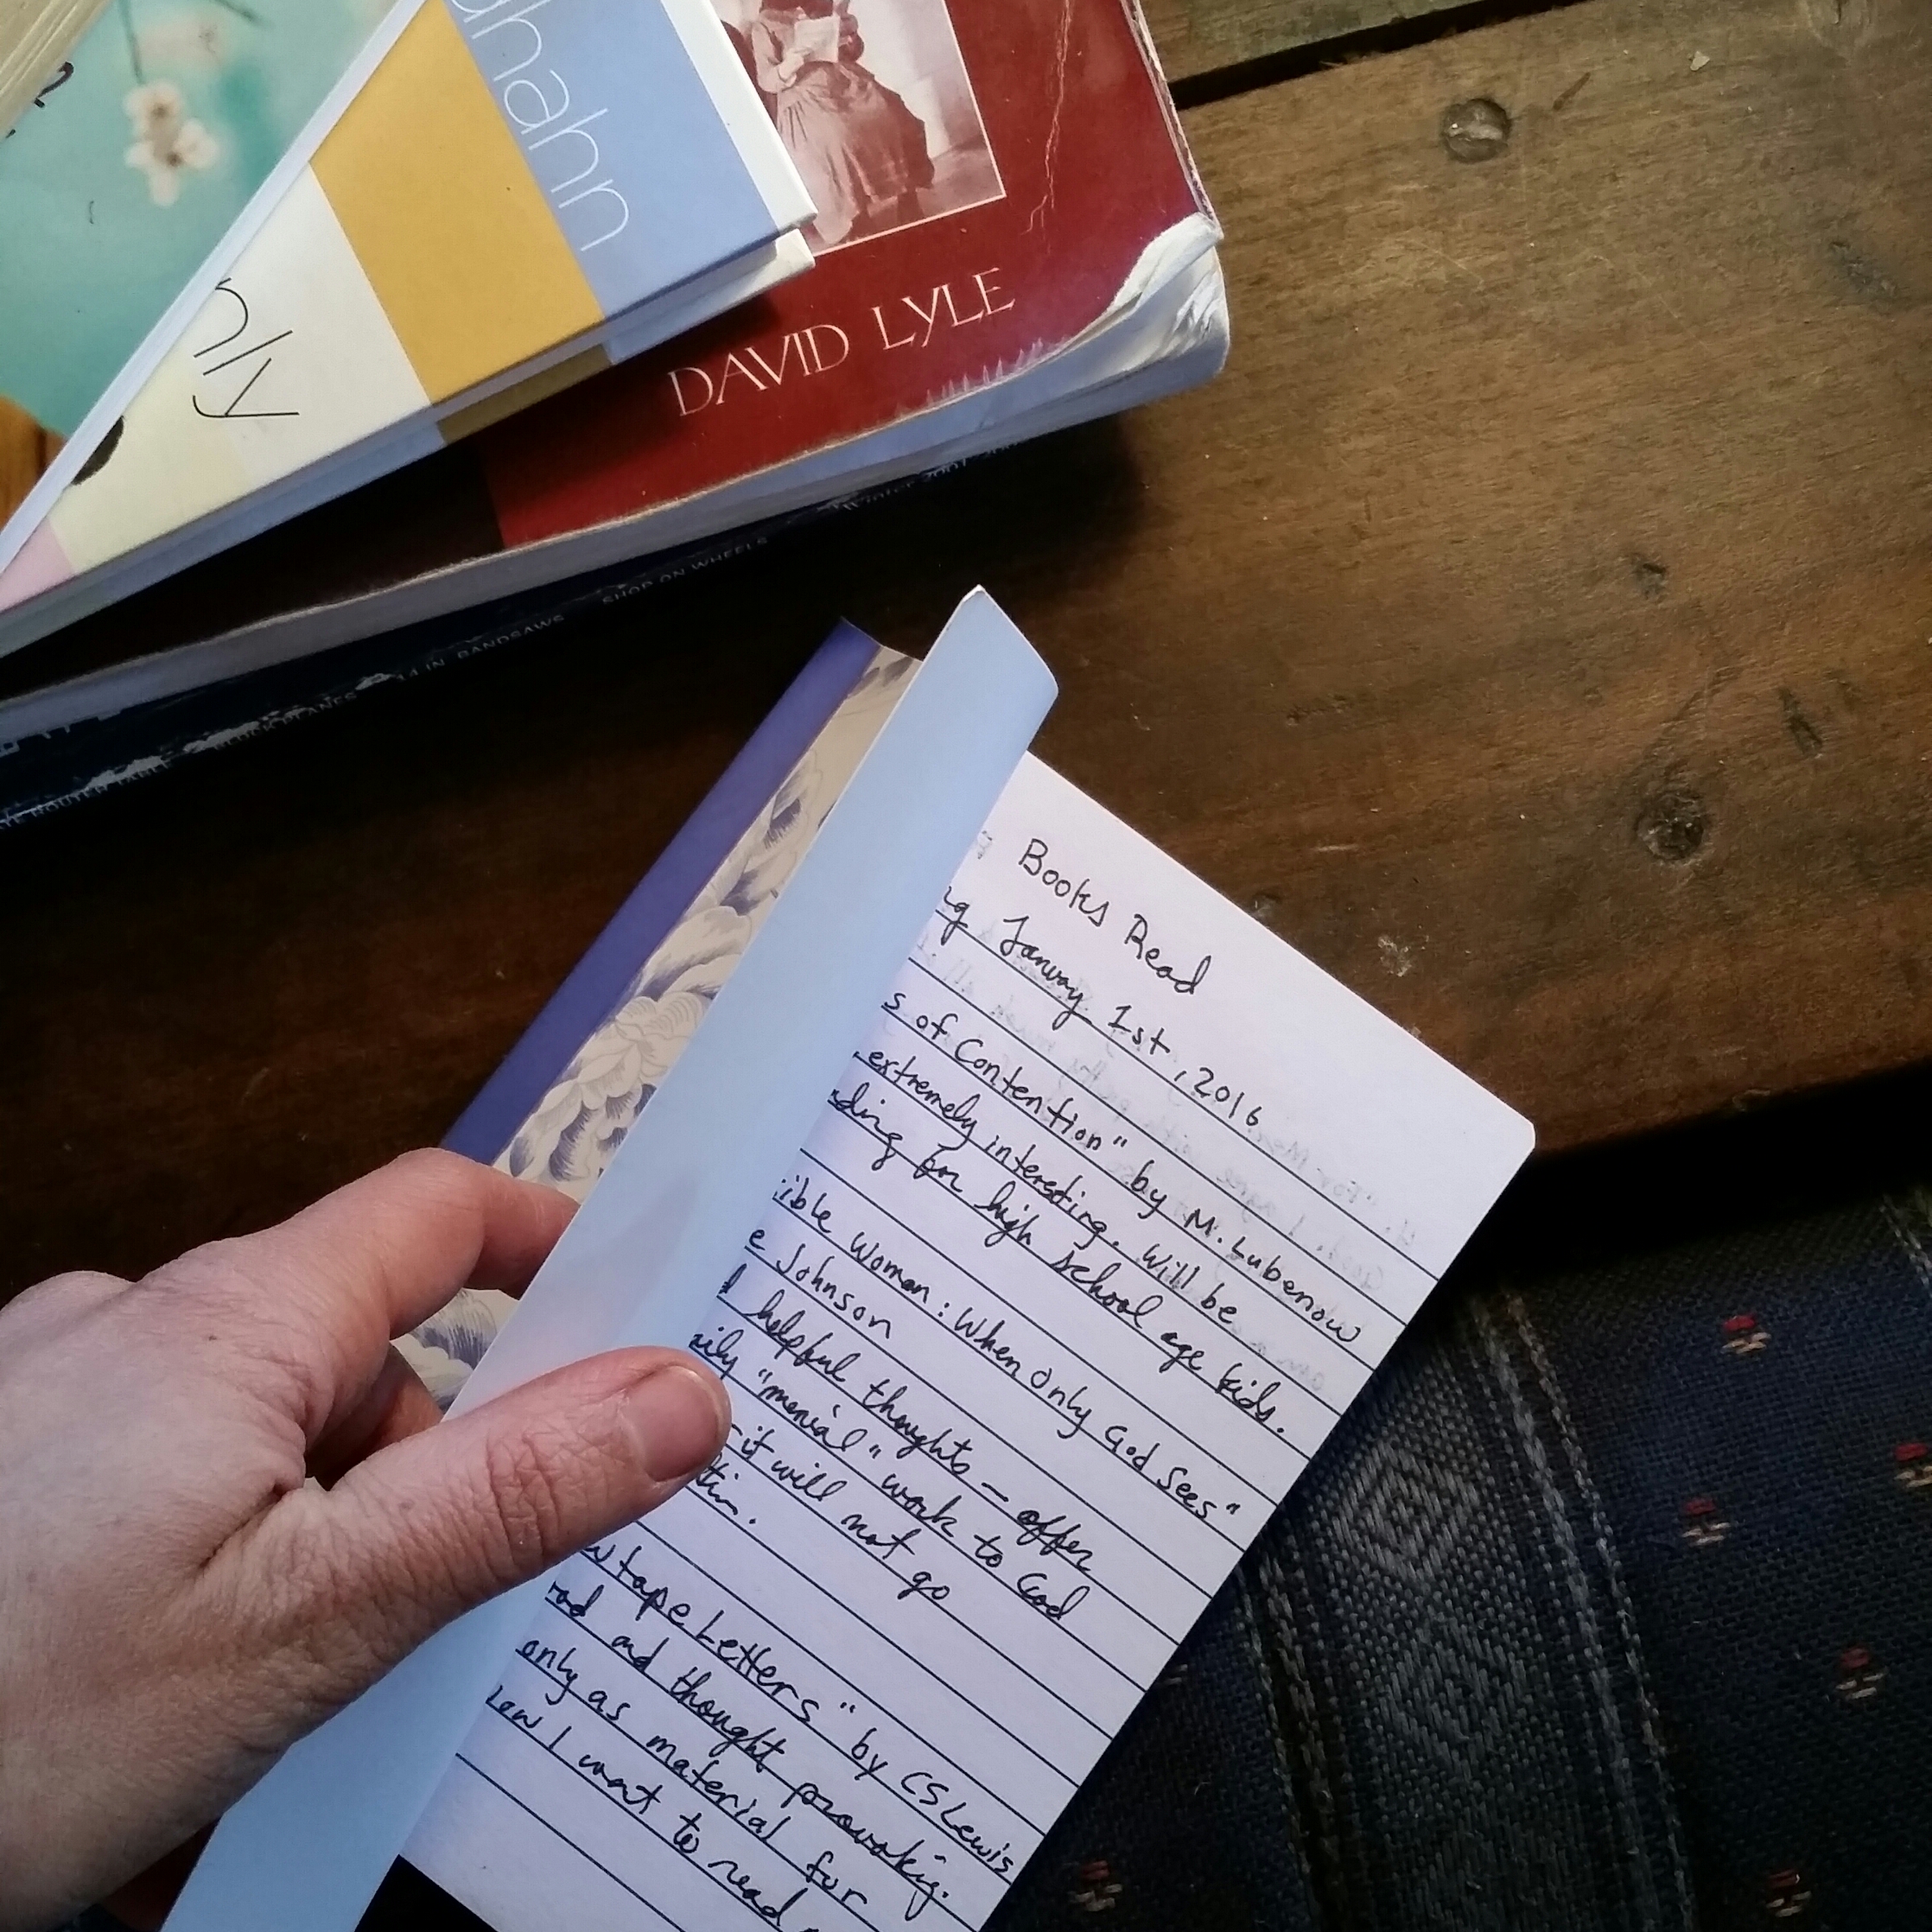 ahann
nly
DAVID LYLE
Winter 2007
SHOP ON WHEELS
14 IN. BANDSAWS
BLOCK PLANES
ROUTER TABLE
Books Read
ng January 1st, 2016
s of Contention" by M. Lubenow
extremely interesting. Will be
ding for high school age kids.
ible Woman: When Only God Sees"
e Johnson
helpful thoughts - offer
aily "menial" work to God
it will not go
w tape Letters" by CS Lewis
and thought provoking.
only as material for
I want to read